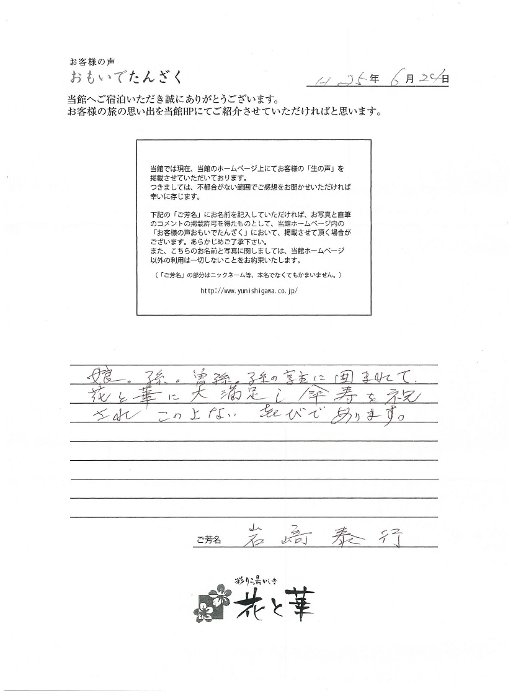 お客様の声
おもいでたんざく
H25年6月24日
当館へご宿泊いただき誠にありがとうございます。
お客様の旅の思い出を当館HPにてご紹介させていただければと思います。
当館では現在、当館のホームページ上にてお客様の「生の声」を
掲載させていただいております。
つきましては、不都合がない範囲でご感想をお聞かせいただければ
幸いに存じます。
下記の「ご芳名」にお名前を記入していただければ、お写真と直筆
のコメントの掲載許可を得たものとして、当館ホームページ内の
「お客様の声おもいでたんざく」において、掲載させて頂く場合が
ございます。あらかじめご了承下さい。
また、こちらのお名前と写真に関しましては、当館ホームページ
以外の利用は一切しないことをお約束いたします。
(「ご芳名」の部分はニックネーム等、本名でなくてもかまいません。)
http://www.yunishigawa.co.jp/
娘。孫。曽孫。孫の主に囲まれて
花と華に大満足し傘寿を祝
され この上ない 喜びで あります。
ご芳名 岩﨑泰行
花と華